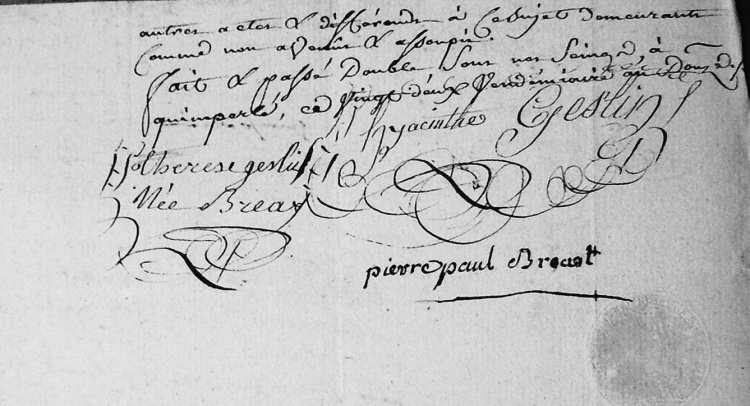 autres actes & différends à ce sujet demeurants
Comme non avenus & assoupis.
fait & passé Double sous nos Seings à
quimperlé, ce vingt deux Vendémiaire an Douze
hyacinthe Gestin
therese geslin
Née Breart
pierre paul Breart